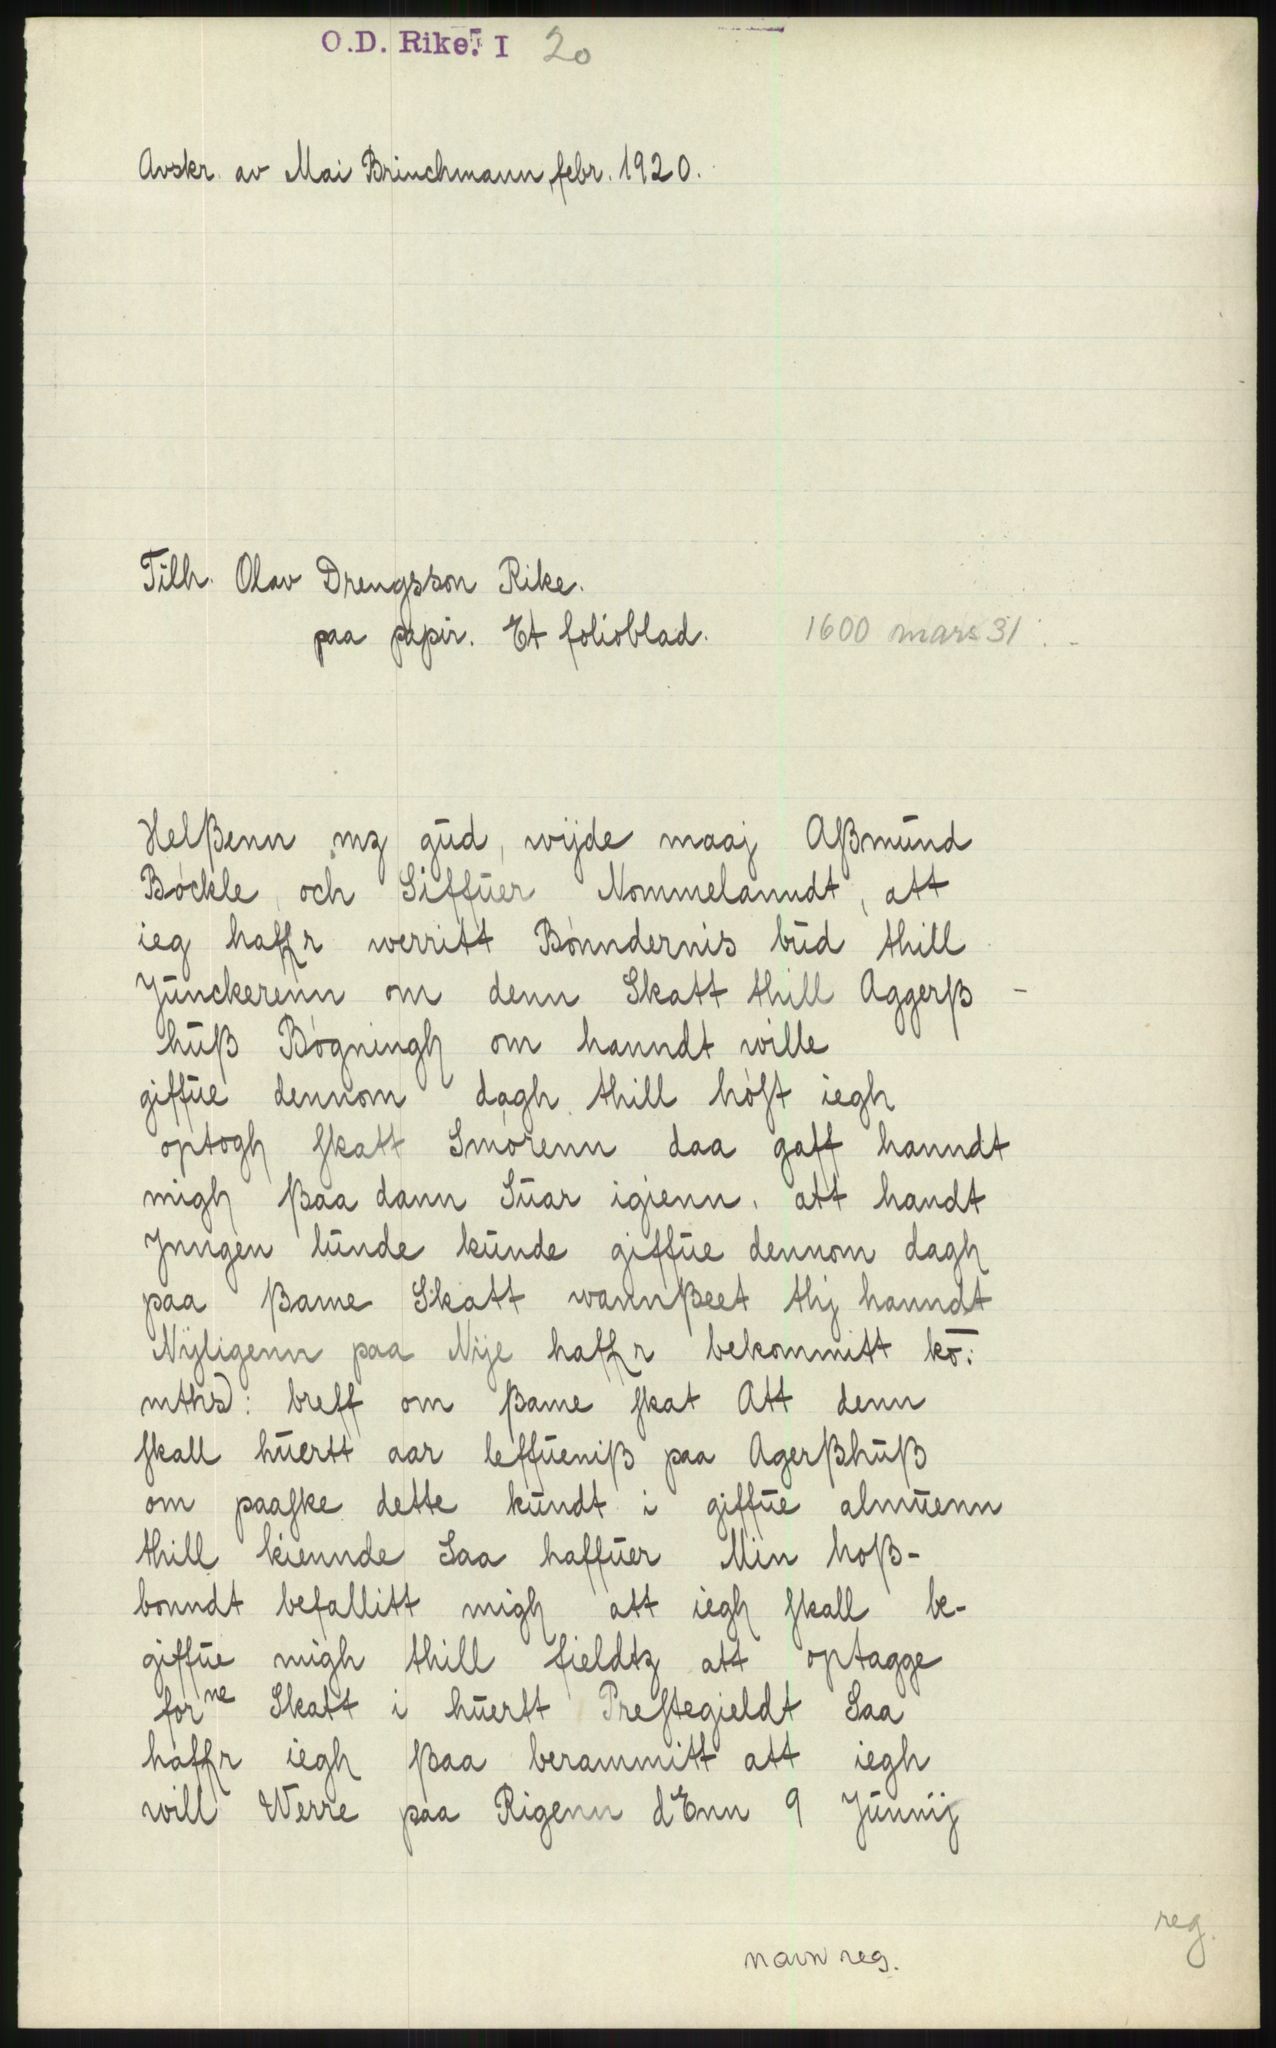 O.D. Rike. I 20
Avskr. av Mai Brinchmann, febr. 1920.
Tilh. Olav Drengsson Rike.
paa papir. Et folioblad. 1600 mars 31
Helßenn mz gūd, wijde maaj Aßmūnd
Böckle och Siffūer Nommelanndt, att
ieg haffr werritt Bönndernis būd thill
Jūnckerenn om denn Skatt thill Aggerß-
hūß Bögningh om hanndt wille
giffūe dennom dagh thill höst iegh
optogh skatt Smörenn daa gaff hanndt
migh ßaa dann Sūar igienn. att handt
Jnngen lūnde kūnde giffūe dennom dagh
paa ßame Skatt wannßeet thj hanndt
Nyligenn paa Nije haffr bekommitt kō:
mths: breff om ßame skat Att denn
skall hūertt aar leffūeniß paa Agerßhūß
om paaske dette kūndt i giffūe almūenn
thill kiennde Saa haffūer Min hoß-
bonndt befallitt migh att iegh skall be-
giffūe migh thill fieldtz att optagge
forne Skatt i hūertt Prestegieldt Saa
haffr iegh ßaa berammitt att iegh
will Werre paa Rigenn dEnn 9 Jūnnij
reg.
navn reg.